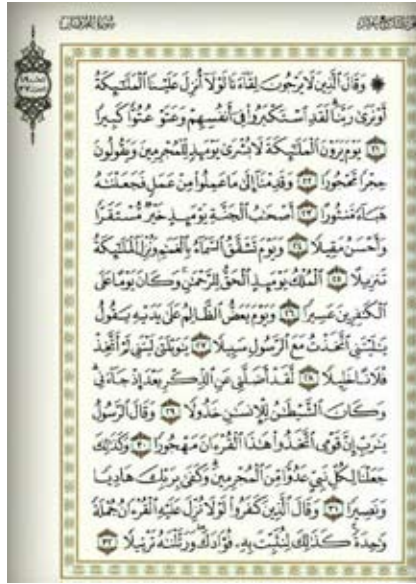 سورة الفرقان
۞ وَقَالَ ٱلَّذِينَ لَا يَرْجُونَ لِقَآءَنَا لَوْلَآ أُنزِلَ عَلَيْنَا ٱلْمَلَٰٓئِكَةُ
أَوْ نَرَىٰ رَبَّنَا لَقَدِ ٱسْتَكْبَرُوا۟ فِىٓ أَنفُسِهِمْ وَعَتَوْ عُتُوًّا كَبِيرًا
٢١ يَوْمَ يَرَوْنَ ٱلْمَلَٰٓئِكَةَ لَا بُشْرَىٰ يَوْمَئِذٍ لِّلْمُجْرِمِينَ وَيَقُولُونَ
حِجْرًا مَّحْجُورًا ٢٢ وَقَدِمْنَآ إِلَىٰ مَا عَمِلُوا۟ مِنْ عَمَلٍ فَجَعَلْنَٰهُ
هَبَآءً مَّنثُورًا ٢٣ أَصْحَٰبُ ٱلْجَنَّةِ يَوْمَئِذٍ خَيْرٌ مُّسْتَقَرًّا
وَأَحْسَنُ مَقِيلًا ٢٤ وَيَوْمَ تَشَقَّقُ ٱلسَّمَآءُ بِٱلْغَمَٰمِ وَنُزِّلَ ٱلْمَلَٰٓئِكَةُ
تَنزِيلًا ٢٥ ٱلْمُلْكُ يَوْمَئِذٍ ٱلْحَقُّ لِلرَّحْمَٰنِ وَكَانَ يَوْمًا عَلَى
ٱلْكَٰفِرِينَ عَسِيرًا ٢٦ وَيَوْمَ يَعَضُّ ٱلظَّالِمُ عَلَىٰ يَدَيْهِ يَقُولُ
يَٰلَيْتَنِى ٱتَّخَذْتُ مَعَ ٱلرَّسُولِ سَبِيلًا ٢٧ يَٰوَيْلَتَىٰ لَيْتَنِى لَمْ أَتَّخِذْ
فُلَانًا خَلِيلًا ٢٨ لَّقَدْ أَضَلَّنِى عَنِ ٱلذِّكْرِ بَعْدَ إِذْ جَآءَنِى
وَكَانَ ٱلشَّيْطَٰنُ لِلْإِنسَٰنِ خَذُولًا ٢٩ وَقَالَ ٱلرَّسُولُ
يَٰرَبِّ إِنَّ قَوْمِى ٱتَّخَذُوا۟ هَٰذَا ٱلْقُرْءَانَ مَهْجُورًا ٣٠ وَكَذَٰلِكَ
جَعَلْنَا لِكُلِّ نَبِىٍّ عَدُوًّا مِّنَ ٱلْمُجْرِمِينَ وَكَفَىٰ بِرَبِّكَ هَادِيًا
وَنَصِيرًا ٣١ وَقَالَ ٱلَّذِينَ كَفَرُوا۟ لَوْلَا نُزِّلَ عَلَيْهِ ٱلْقُرْءَانُ جُمْلَةً
وَٰحِدَةً كَذَٰلِكَ لِنُثَبِّتَ بِهِۦ فُؤَادَكَ وَرَتَّلْنَٰهُ تَرْتِيلًا ٣٢